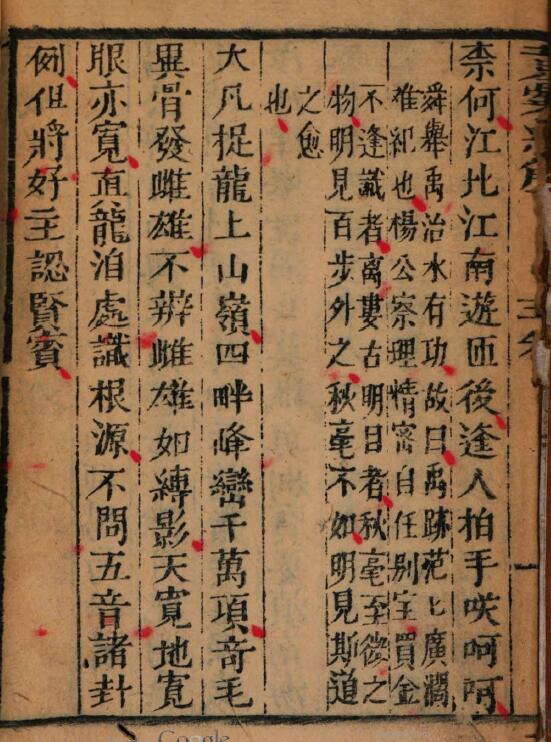 柰何江北江南遊匝後逢人拍手咲呵呵
舜舉禹治水有功故曰禹跡茫匕廣濶
难紀也楊公察理情宻自任别宝買金
不逢識者離婁古明目者秋毫至微之
物明見百步外之秋毫不如明見斯道
之愈
也
大凡捉龍上山嶺四畔峰巒千萬項竒毛
異骨發雌雄不辨雌雄如縛影天寛地寛
眼亦寛直龍泊處識根源不問五音諸卦
例但將好主認賢賔
Google